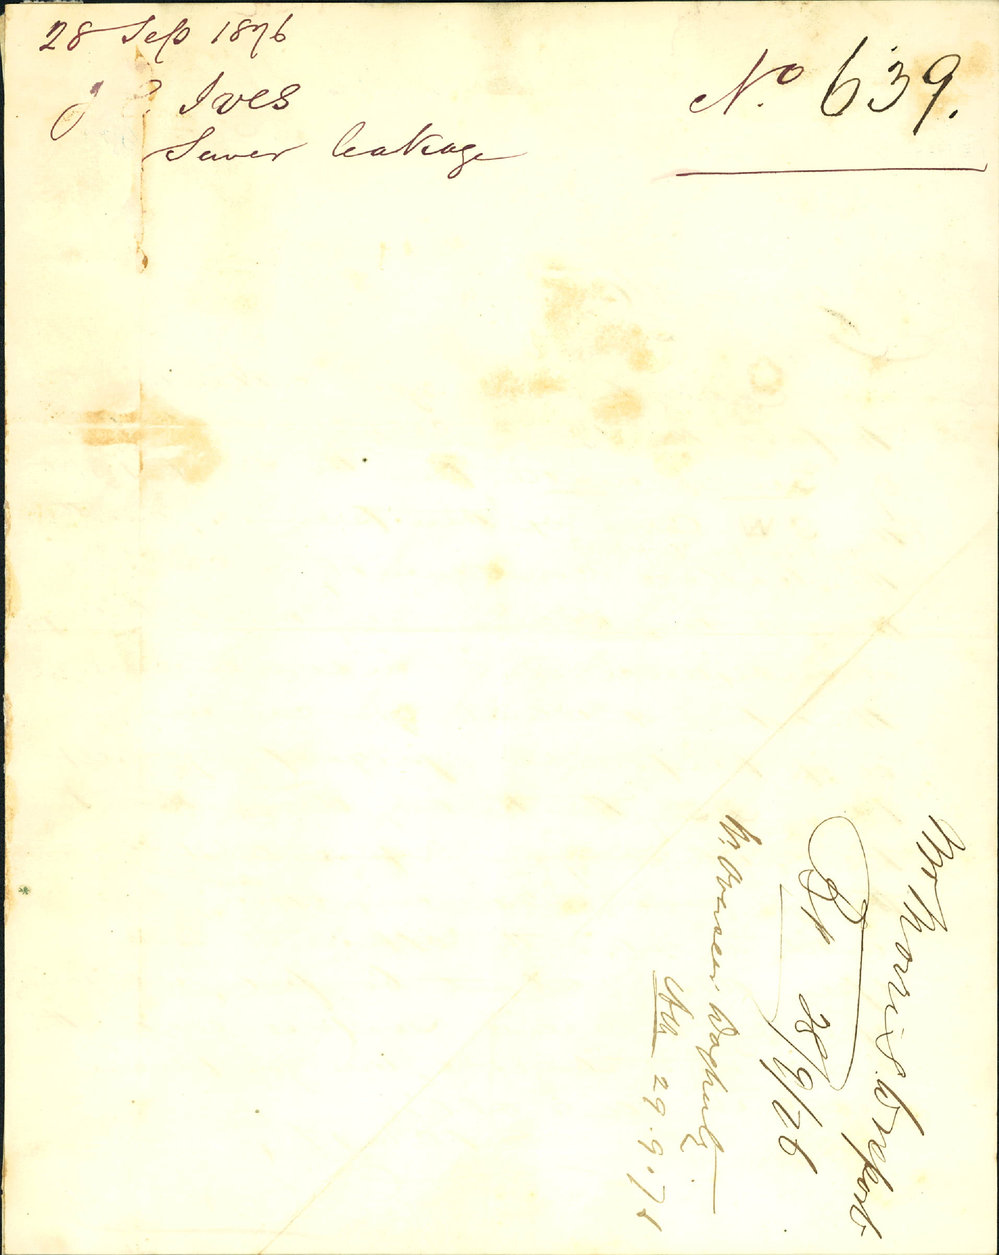 28 Sep 1876
J Ives
Sewer leakage
No. 639.
Mr Morris to report
28/9/76
Mr Overseer
29.9.76